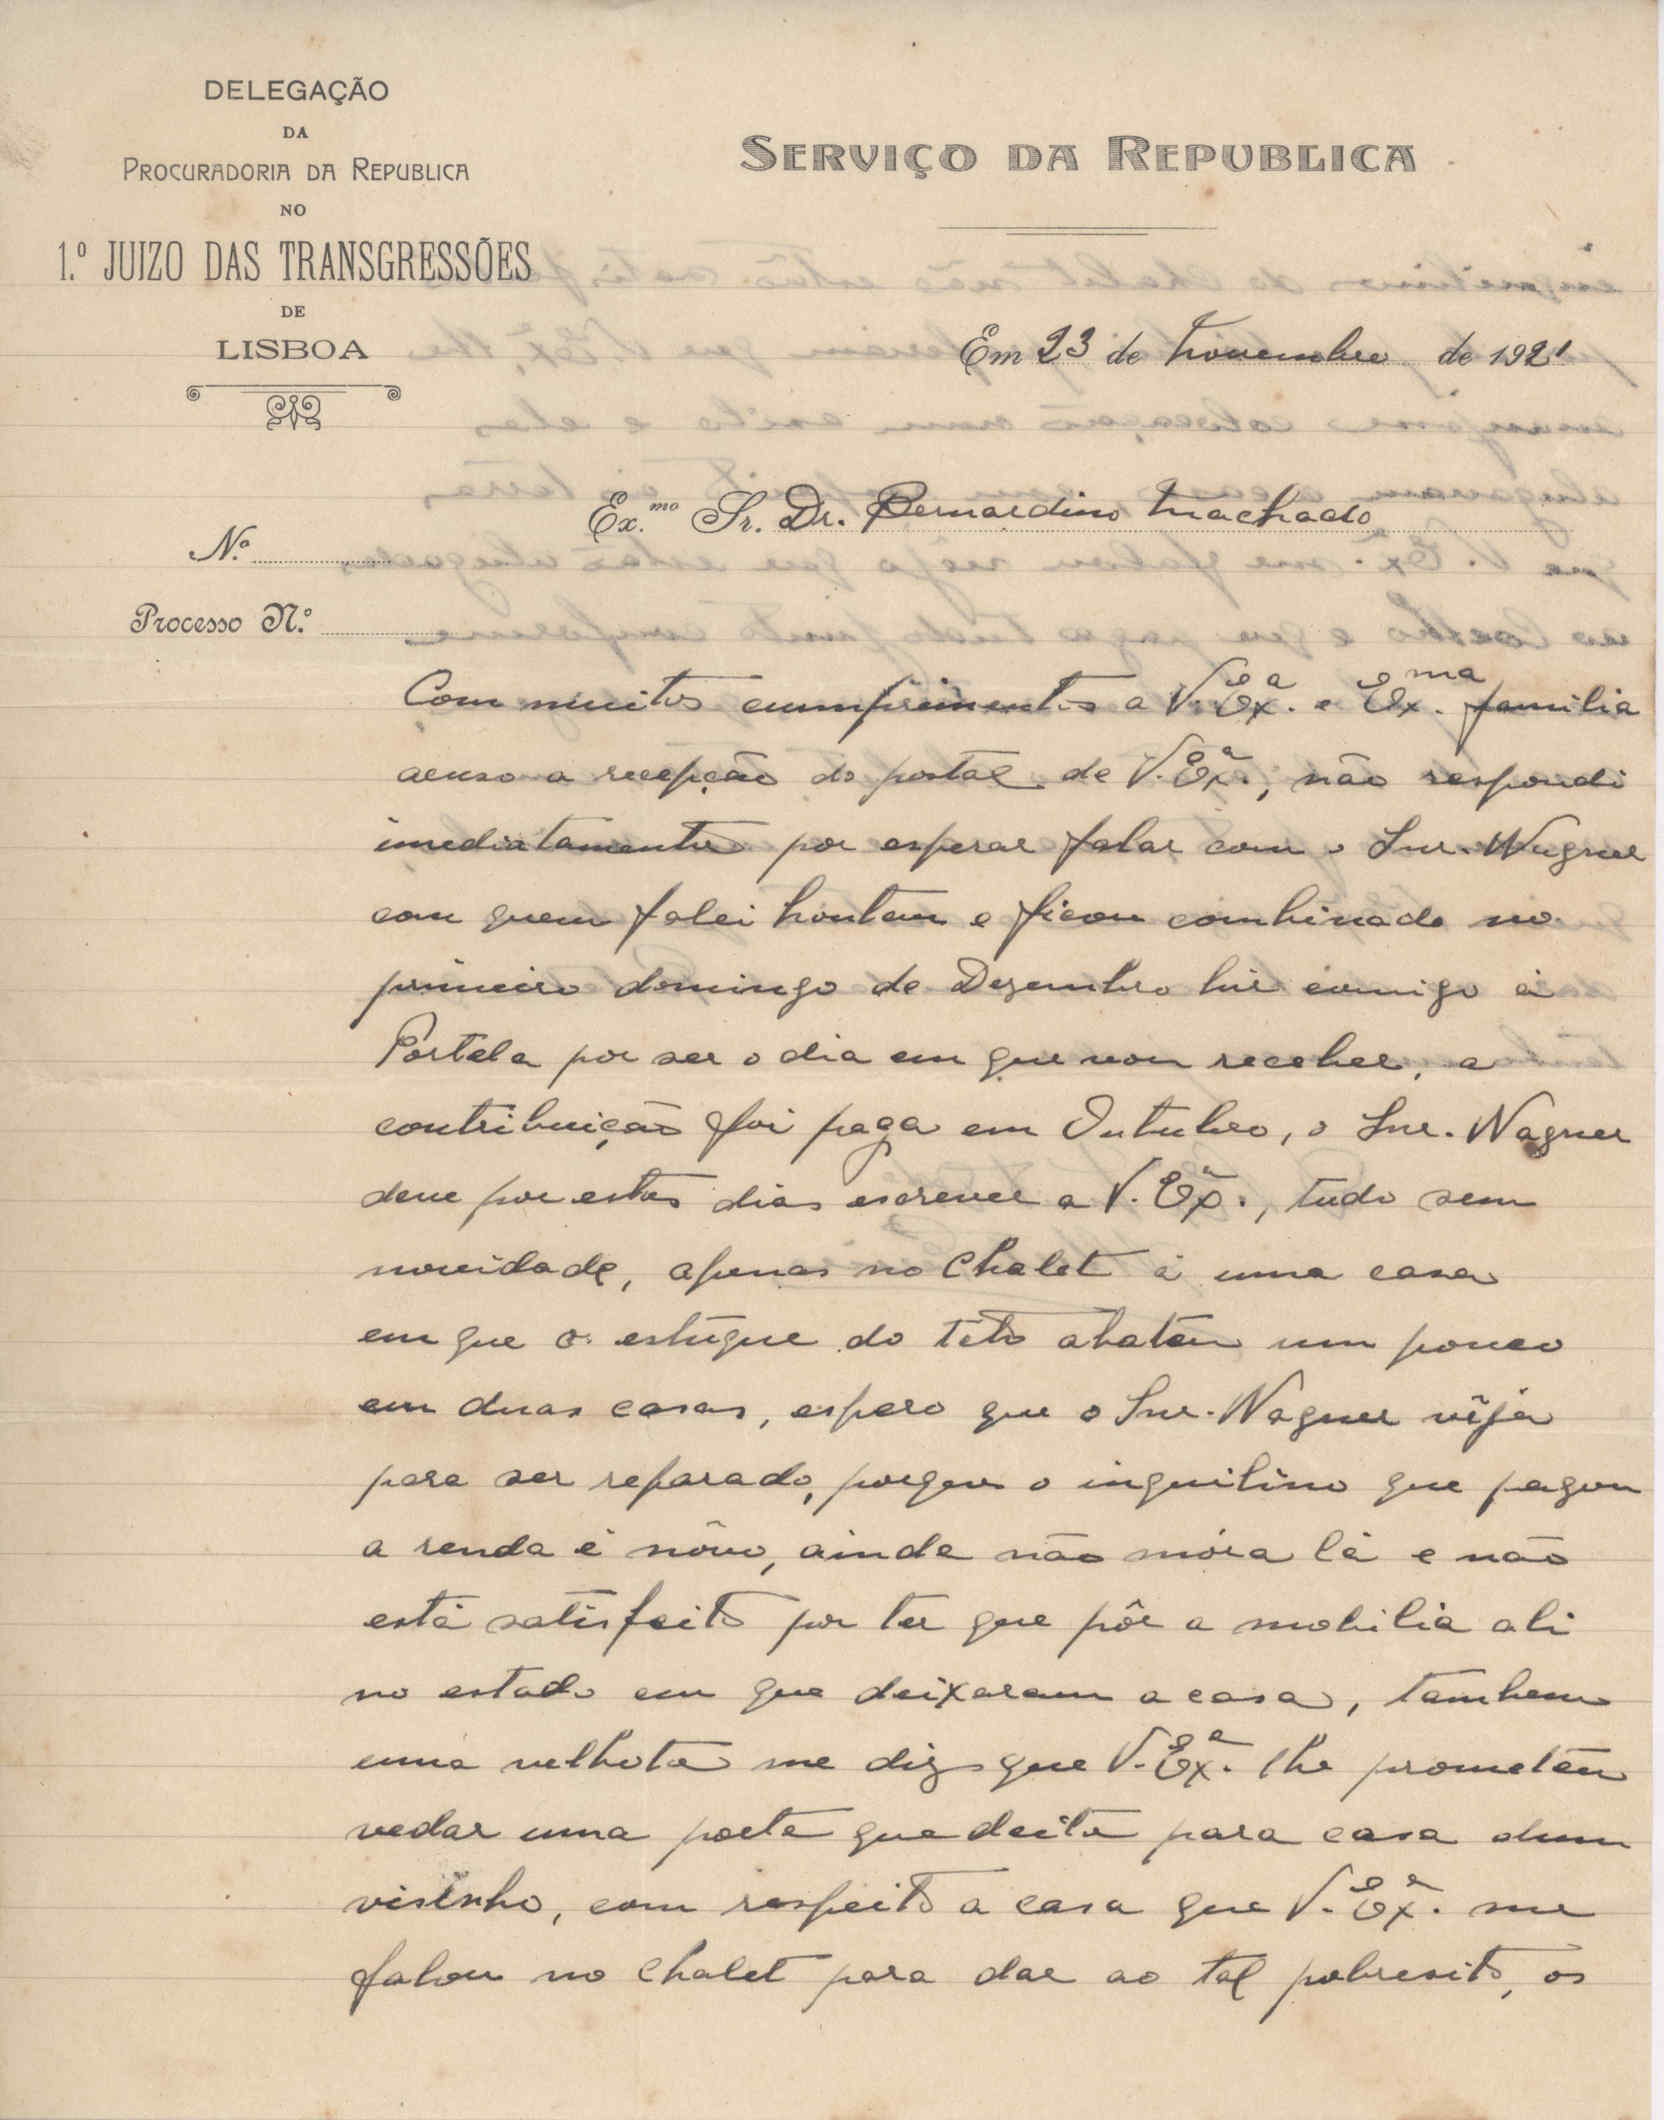 DELEGAÇÃO
DA
PROCURADORIA DA REPUBLICA
NO
1.º JUIZO DAS TRANSGRESSÕES
DE
LISBOA
SERVIÇO DA REPUBLICA
Em 23 de Novembro de 1921
Ex.mo Sr. Dr. Bernardino Machado
N.º
Processo N.º
Com muitos cumprimentos a V. Exª. e Exma. familia
acuso a recepção do postal de V. Exª., não respondi
imediatamente por esperar falar com o Snr. Wagner
com quem falei hontem e ficou combinado no
primeiro domingo de Dezembro hir comigo á
Portela por ser o dia em que vou receber, a
contribuição foi paga em Outubro, o Snr. Wagner
deve por estes dias escrever a V. Exª., tudo sem
novidade, apenas no Chalet á uma casa
em que o estúque do této abatêu um pouco
em duas casas, espero que o Snr. Wagner vêja
para ser reparado, porque o inquilino que pagou
a renda é nôvo, ainda não móra lá e não
está satisfeito por ter que pôr a mobilia ali
no estado em que deixaram a casa, tambem
uma velhota me diz que V. Exª. lhe prometêu
vedar uma porta que deita para casa dum
visinho, com respeito a casa que V. Exª. me
falou no Chalet para dar ao tal pobresito, os